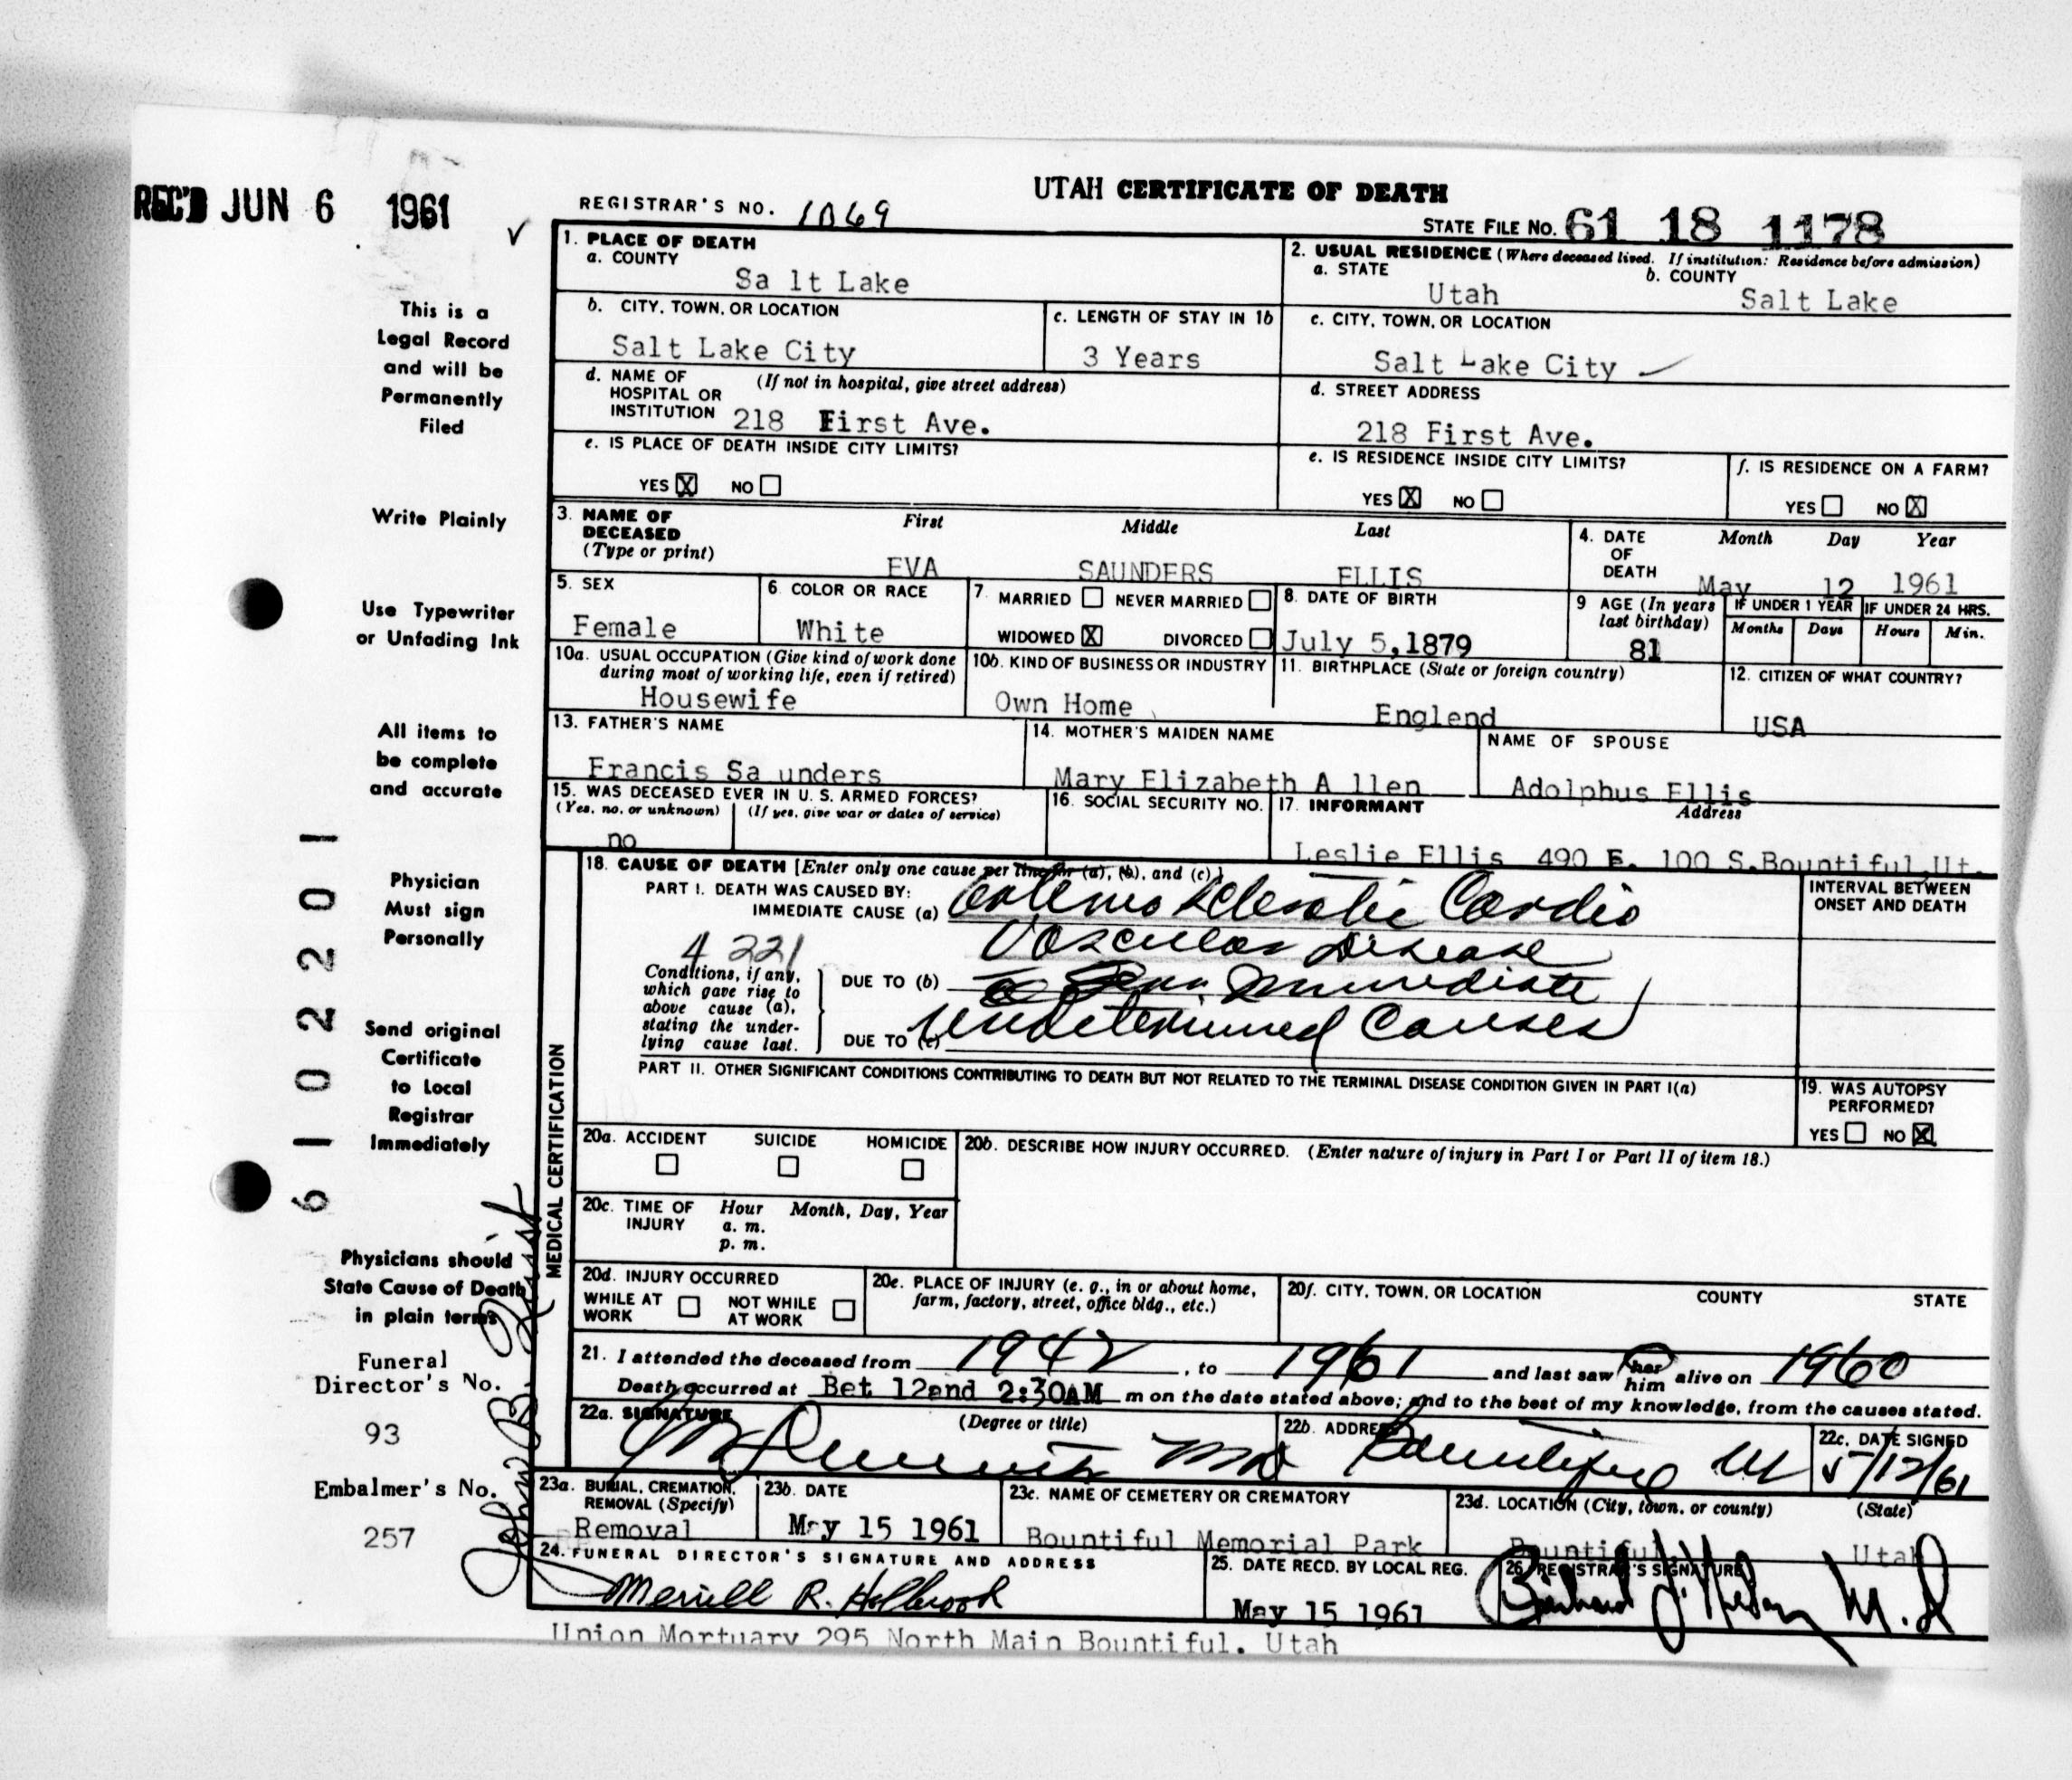 REC'D JUN 6 1961
UTAH CERTIFICATE OF DEATH
REGISTRAR'S NO. 1069
STATE FILE NO. 61 18 1178
1. PLACE OF DEATH
a. COUNTY
Sa lt Lake
2. USUAL RESIDENCE (Where deceased lived. If institution: Residence before admission)
a. STATE
Utah
b. COUNTY
Salt Lake
b. CITY, TOWN, OR LOCATION
Salt Lake City
c. LENGTH OF STAY IN 1b
3 Years
c. CITY, TOWN, OR LOCATION
Salt Lake City
d. NAME OF HOSPITAL OR INSTITUTION (If not in hospital, give street address)
218 First Ave.
d. STREET ADDRESS
218 First Ave.
e. IS PLACE OF DEATH INSIDE CITY LIMITS?
YES X NO
e. IS RESIDENCE INSIDE CITY LIMITS?
YES X NO
f. IS RESIDENCE ON A FARM?
YES NO X
3. NAME OF DECEASED (Type or print)
First Middle Last
EVA SAUNDERS ELLIS
4. DATE OF DEATH
Month Day Year
May 12 1961
5. SEX
Female
6. COLOR OR RACE
White
7. MARRIED NEVER MARRIED
WIDOWED X DIVORCED
8. DATE OF BIRTH
July 5,1879
9 AGE (In years last birthday)
81
IF UNDER 1 YEAR
Months Days
IF UNDER 24 HRS.
Hours Min.
10a. USUAL OCCUPATION (Give kind of work done during most of working life, even if retired)
Housewife
10b. KIND OF BUSINESS OR INDUSTRY
Own Home
11. BIRTHPLACE (State or foreign country)
Englend
12. CITIZEN OF WHAT COUNTRY?
USA
13. FATHER'S NAME
Francis Sa unders
14. MOTHER'S MAIDEN NAME
Mary Elizabeth A llen
NAME OF SPOUSE
Adolphus Ellis
15. WAS DECEASED EVER IN U. S. ARMED FORCES?
(Yes, no, or unknown) (If yes, give war or dates of service)
no
16. SOCIAL SECURITY NO.
17. INFORMANT Address
Leslie Ellis 490 E. 100 S.Bountiful,Ut.
MEDICAL CERTIFICATION
18. CAUSE OF DEATH [Enter only one cause per line for (a), (b), and (c).]
PART I. DEATH WAS CAUSED BY:
IMMEDIATE CAUSE (a) Cardio
Vascular Disease
4 221
Conditions, if any, which gave rise to above cause (a), stating the underlying cause last.
DUE TO (b) Immediate
DUE TO (c) Undetermined Causes
INTERVAL BETWEEN ONSET AND DEATH
PART II. OTHER SIGNIFICANT CONDITIONS CONTRIBUTING TO DEATH BUT NOT RELATED TO THE TERMINAL DISEASE CONDITION GIVEN IN PART I(a)
19. WAS AUTOPSY PERFORMED?
YES NO X
20a. ACCIDENT SUICIDE HOMICIDE
20b. DESCRIBE HOW INJURY OCCURRED. (Enter nature of injury in Part I or Part II of item 18.)
20c. TIME OF INJURY Hour Month, Day, Year
a. m.
p. m.
20d. INJURY OCCURRED
WHILE AT WORK NOT WHILE AT WORK
20e. PLACE OF INJURY (e. g., in or about home, farm, factory, street, office bldg., etc.)
20f. CITY, TOWN, OR LOCATION COUNTY STATE
21. I attended the deceased from 1942, to 1961 and last saw her him alive on 1960
Death occurred at Bet 12and 2:30AM m on the date stated above; and to the best of my knowledge, from the causes stated.
22a. SIGNATURE (Degree or title)
MD
22b. ADDRESS
Bountiful Ut
22c. DATE SIGNED
5/12/61
23a. BURIAL, CREMATION, REMOVAL (Specify)
Removal
23b. DATE
May 15 1961
23c. NAME OF CEMETERY OR CREMATORY
Bountiful Memorial Park
23d. LOCATION (City, town, or county) (State)
Bountiful, Utah
24. FUNERAL DIRECTOR'S SIGNATURE AND ADDRESS
Merrill R. Holbrook
Union Mortuary 295 North Main Bountiful, Utah
25. DATE RECD. BY LOCAL REG.
May 15 1961
26. REGISTRAR'S SIGNATURE
M.D
This is a
Legal Record
and will be
Permanently
Filed
Write Plainly
Use Typewriter
or Unfading Ink
All items to
be complete
and accurate
Physician
Must sign
Personally
Send original
Certificate
to Local
Registrar
Immediately
Physicians should
State Cause of Death
in plain terms
Funeral
Director's No.
93
Embalmer's No.
257
61022201
John B.